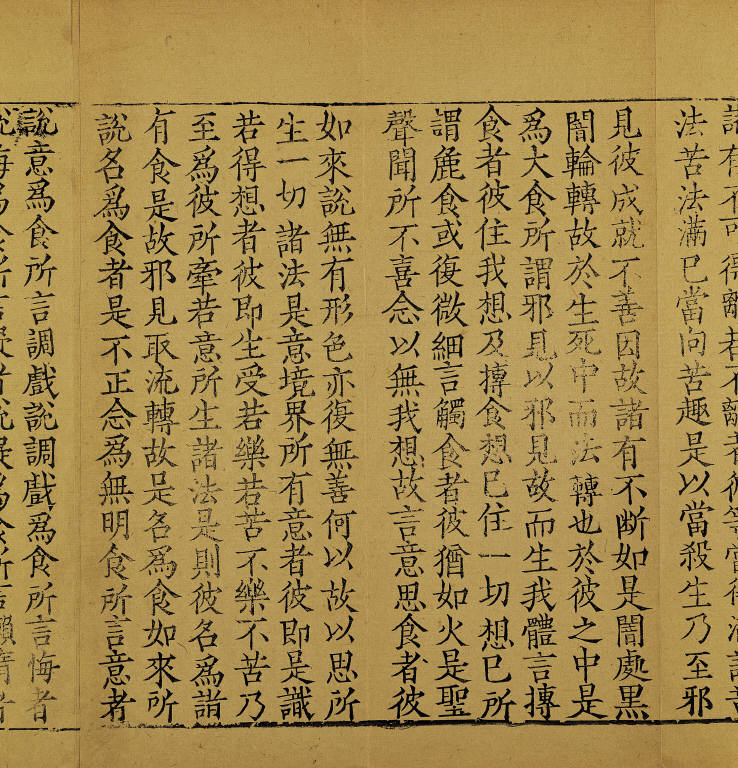 說有不可得離若不離者彼等當得滿諸苦
法苦法滿巳當向苦趣是以當殺生乃至邪
見彼成就不善因故諸有不断如是闇處黒
闇輪轉故於生死中而法轉也於彼之中是
爲大食所謂邪見以邪見故而生我體言摶
食者彼住我想及摶食想巳住一切想巳所
謂麁食或復微細言觸食者彼猶如火是聖
聲聞所不喜念以無我想故言意思食者彼
如來說無有形色亦復無善何以故以思所
生一切諸法是意境界所有意者彼即是識
若得想者彼即生受若樂若苦不樂不苦乃
至爲彼所牽若意所生諸法是則彼名爲諸
有食是故邪見取流轉故是名爲食如來所
說名爲食者是不正念爲無明食所言意者
說意爲食所言調戲說調戲爲食所言悔者
說悔爲食所言疑者說疑爲食所言懶惰者